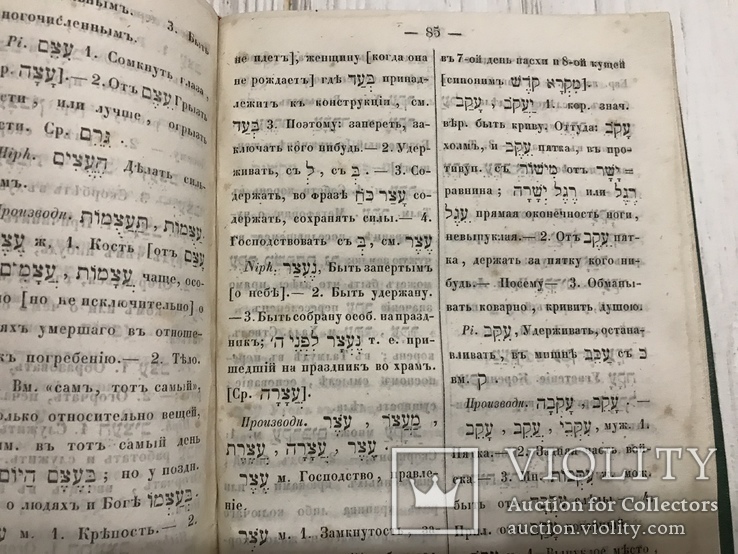 льнымъ. — 3. Быть
ногочисленнымъ.
Pi. עִצֵּם 1. Сомкнуть глаза,
עָצָה]. — 2. Отъ עֶצֶם Грызть
сти, или лучше, огрызать
сти. Ср. גָּרַם.
Hiph. הֶעֱצִים Дѣлать силь-
мъ.
Производн. עַצְמוּת, תַּעֲצֻמוֹת,
עֶצֶם ж. 1. Кость [отъ
עֲצָמוֹת, עֲצָמִים чаще, осо-
но [но не исключительно] о
яхъ умершаго въ отноше-
къ погребенію. — 2. Тѣло.
Вм. „самъ, тотъ самый",
олько относительно вещей,
им. въ тотъ самый день
בְּעֶצֶם הַיּוֹם; но у поздн.
בְּעַצְמוֹ о людяхъ и Богѣ
м. 1. Крѣпость. — 2.
— 85 —
не идетъ], женщину [когда она
не рождаетъ] гдѣ בְּעַד принад-
лежитъ къ конструкціи, см.
בְּעַד 3. Поэтому: запереть, за-
ключать кого нибудь. — 2. Удер-
живать, съ לְ, съ בְּ. — 3. Со-
держать, во фразѣ עָצַר כֹּחַ со-
держать, сохранять силы. — 4.
Господствовать съ בְּ, см. עֶצֶר
Niph. נֶעְצַר, Быть запертымъ
[о небѣ]. — 2. Быть удержану.
— 3. Быть собрану особ. на празд-
никъ; נֶעְצָר לִפְנֵי ה' т. е. при-
шедшій на праздникъ во храмъ.
[Ср. עֲצָרָה].
Производн. מַעְצָר, עֹצֶר,
עֶצֶר, עֲצָרָה, עֲצֶרֶת
עֶצֶר м. Господство, правле-
ніе;
עֹצֶר м. 1. Замкнутость, за-
въ 7-ой день пасхи и 8-ой кущей
[синонимъ מִקְרָא קֹדֶשׁ].
עָקַב, יַעְקֹב 1. кор. знач.
вѣр. быть криву. Оттуда: עָקֹב
холмъ, и עָקֵב пятка, въ про-
тивуп. מִישׁוֹר отъ יָשַׁר—
равнина; רֶגֶל יְשָׁרָה или רֶגֶל
עֵגֶל прямая оконечность ноги,
невыпуклая. — 2. Отъ עָקֵב пят-
ка, держать за пятку кого ни-
будь. — Посему — 3. Обманы-
вать коварно, кривить душою.
Pi. עִקֵּב, Удерживать, остана-
вливать, въ мишнѣ עִכֵּב съ כ
вм. ק.
Производн. עָקֵב, עָקְבָה,
עָקֹב, עֲקֵבִי, עֵקֶב, муж. 1.
Пятка. — 2.
VIOLITY
Auction for Collectors
auction.violity.com